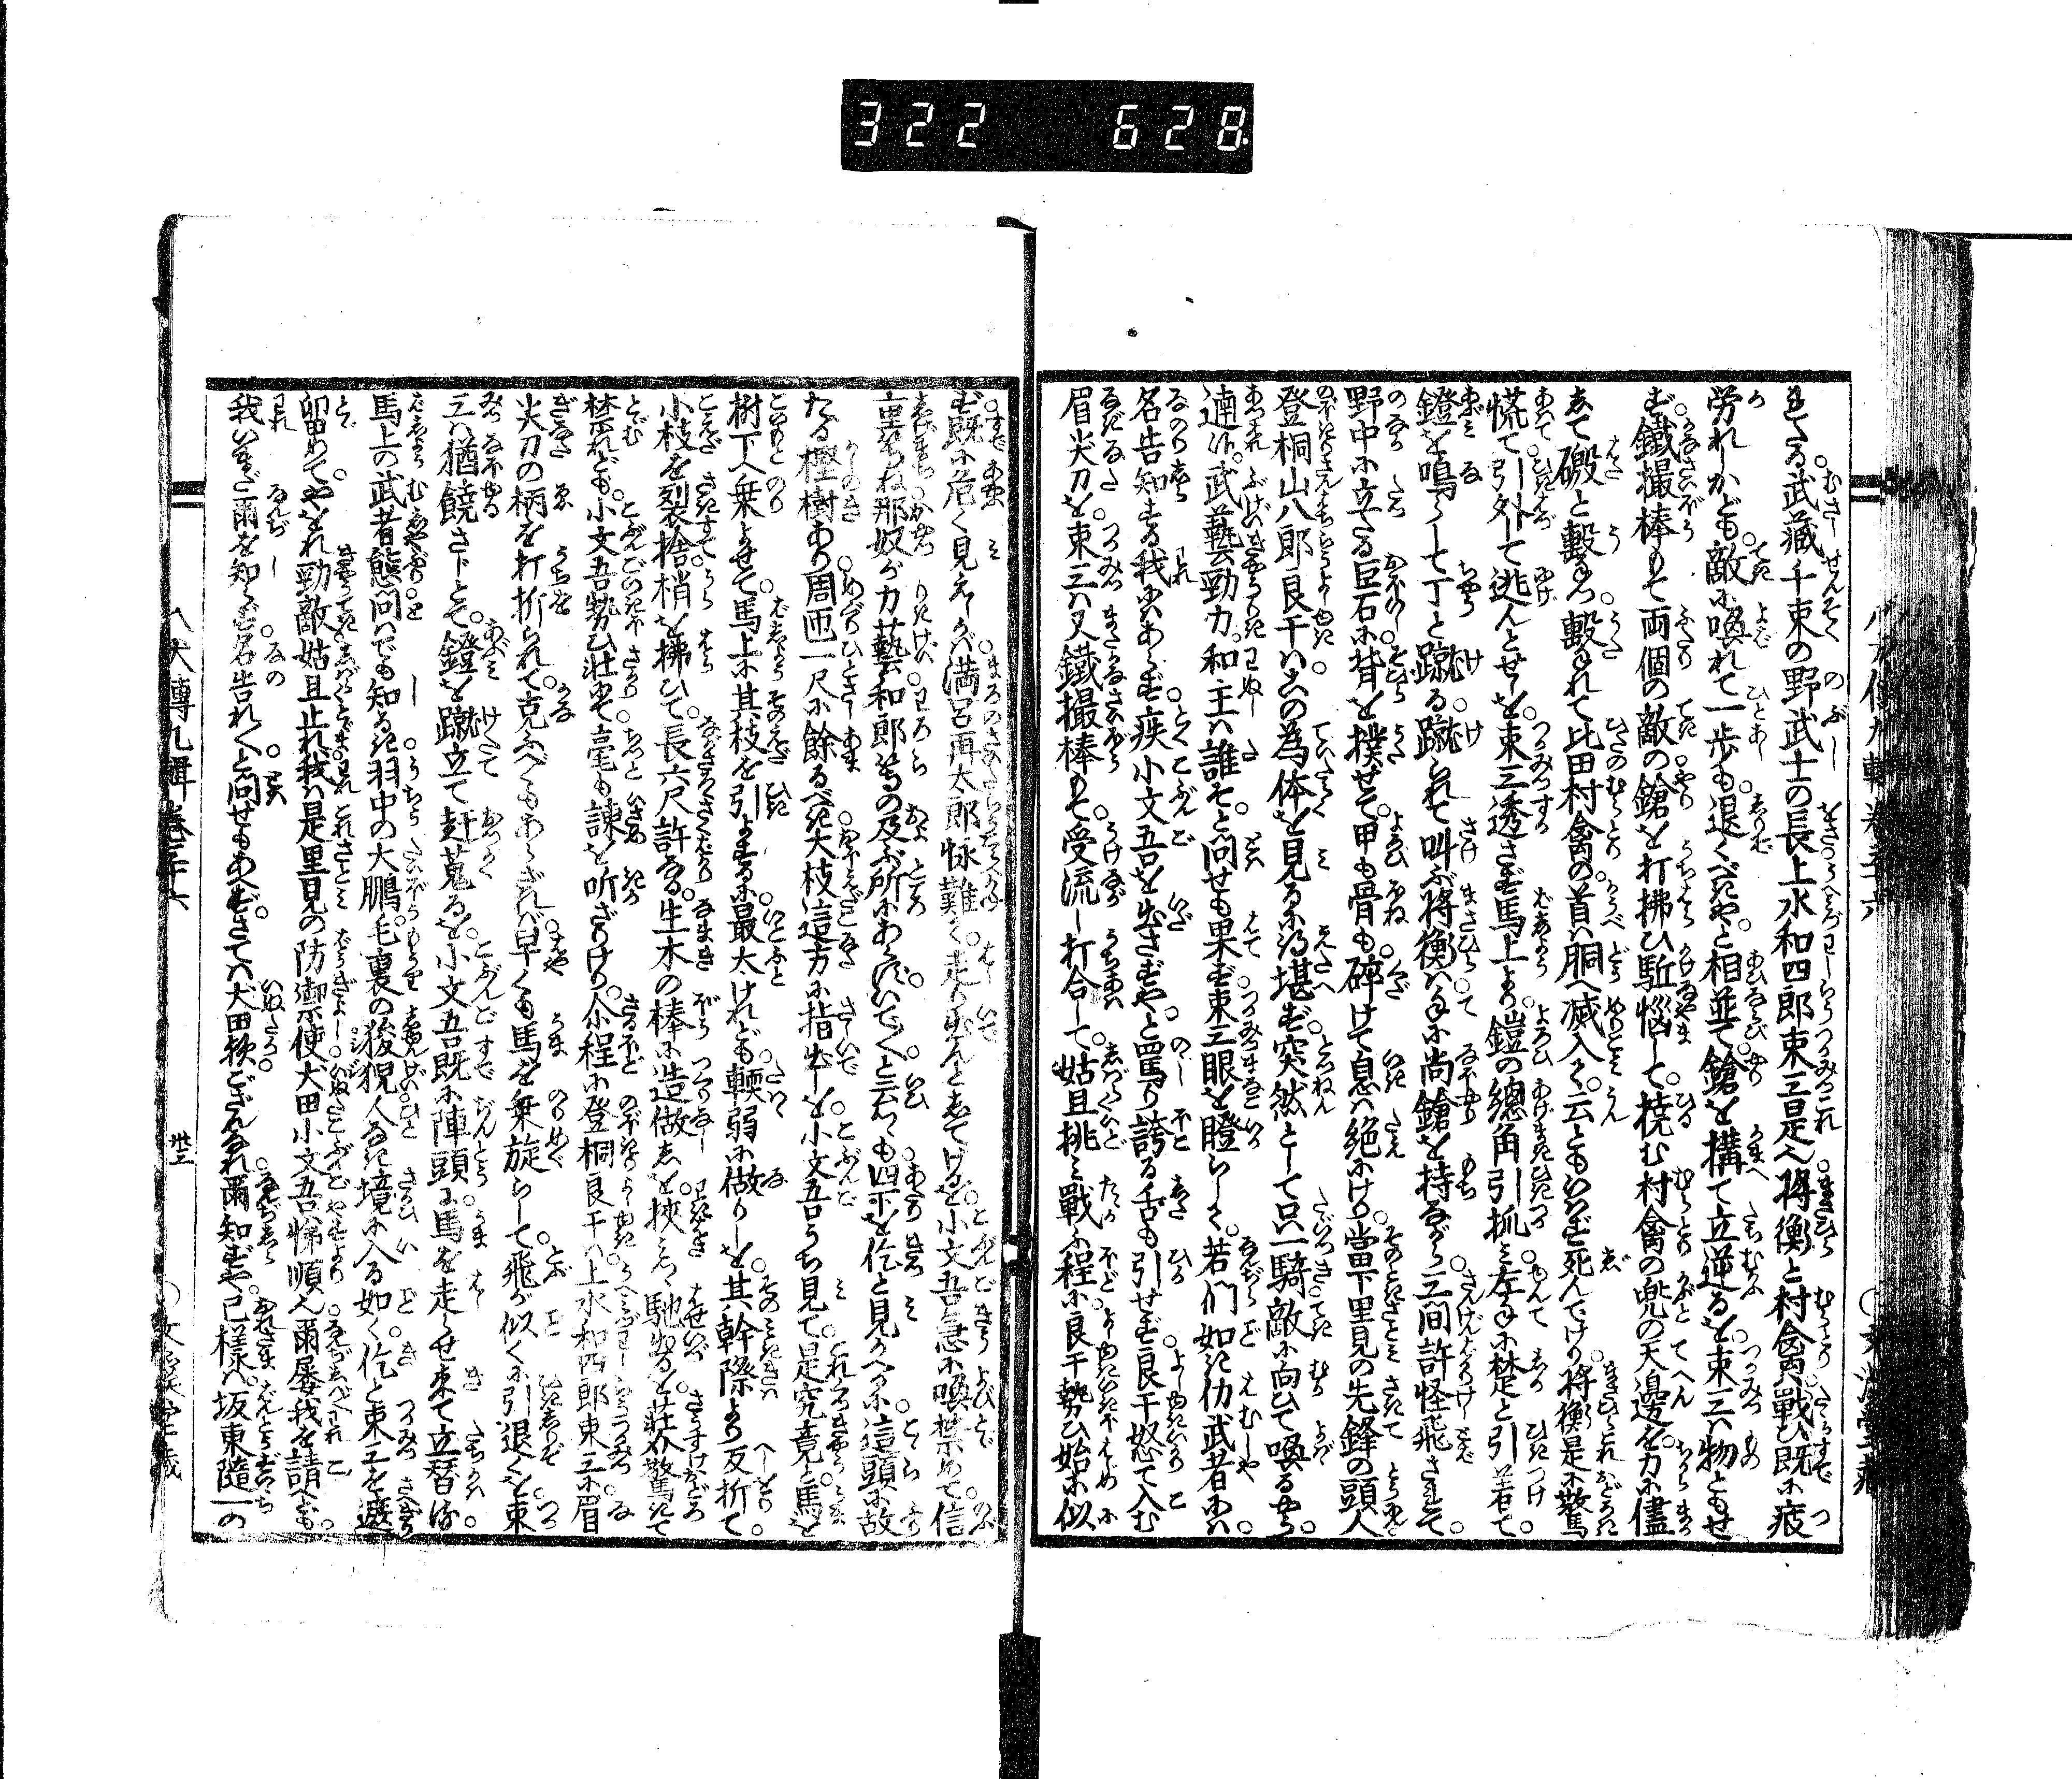 322 628
れたる武藏千束の野武士の長上水和四郎束三是へ將衡と村禽戰ひ既に疲
労れしかども敵に喚れて一歩も退くべきやと相並て鎗を構て立逆るを束三は物ともせ
ず鐵撮棒もて両個の敵の鎗を打拂ひ駈惱して撓む村禽の兜の天邊を力に儘
して磤と毄は毄れて比田村禽の首は胴へ滅入く云ともいはず死んでけり將衡是に驚
慌て引外て逃んとせしを束三透さず馬上より鎧の總角引抓み左手に楚と引著て
鐙を鳴らして丁と蹴る蹴られて叫ぶ將衡は手に尚鎗を持ながら三間許怪飛されて
野中に立たる巨石に背を撲せて甲も骨も碎けて息は絶にけり當下里見の先鋒の頭人
登桐山八郎良干はこの為体を見るに得堪ず突然として只一騎敵に向ひて喚るやう
遖れ武藝勁力和主は誰そと問せも果ず束三眼を瞪らして若們如き仂武者には
名告知する我にはあらず疾小文吾を出さずやと罵り誇る舌も引せず良干怒て入む
眉尖刀を束三は又鐵撮棒もて受流し打合して姑且挑み戰ふ程に良干勢ひ始に似
ず既に危く見えしかば満呂再太郎怺難く走り出んとしてけるを小文吾急に喚禁めて信
重等ね那奴が力藝和郎等の及ぶ所にあらずいでくと云つゝも四下を佶と見かへるに這頭に故
たる樫樹あり周匝一尺に餘るべき大枝這方に指出しを小文吾うち見て是究竟と馬を
樹下へ乗よせて馬上に其枝を引よするに最大けれども輭弱に做りしを其幹際より反折て
小枝を裂捨梢を拂ひて長六尺許なる生木の棒に造做しを挾みつゝ馳出るを荘介驚きて
禁れども小文吾勢ひ壮にて毫も諫を听ざりけり介程に登桐良干は上水和四郎束三に眉
尖刀の柄を打折られて克ふべくもあらざれば早くも馬を乗旋らして飛が似くに引退くを束
三は猶饒さじとて鐙を蹴立て赶蒐るを小文吾既に陣頭に馬を走らせ來て立替は
馬上の武者態問はでも知るき羽中の大鵬毛裏の狻猊人なき境に入る如く佶と束三を遮
留めてやをれ勁敵姑且止れ我は是里見の防禦使犬田小文吾悌順へ爾屡我を請へども
我いまだ爾を知らず名告れくと問せもあへずさては犬田欤ござんなれ爾知ずや己様は坂東隨一の
八犬傳九輯巻三十六
丗三